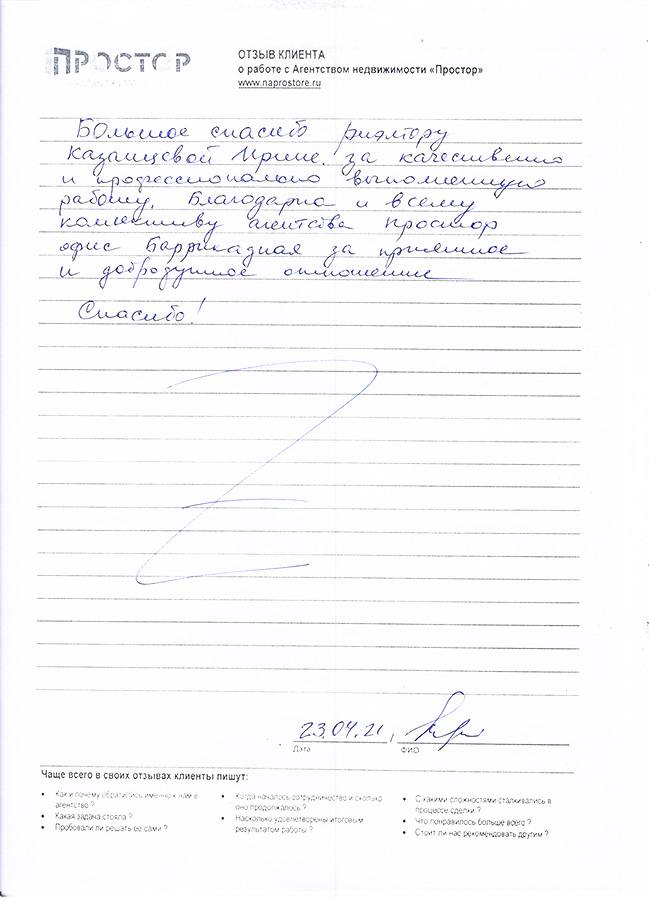 ПРОСТОР
ОТЗЫВ КЛИЕНТА
о работе с Агентством недвижимости «Простор»
www.naprostore.ru
Большое спасибо риэлтору
Казанцевой Ирине за качественно
и профессионально выполненную
работу. Благодарна и всему
коллективу агентства Простор
офис Баррикадная за приятное
и добродушное отношение
Спасибо!
23.04.21,
Дата
ФИО
Чаще всего в своих отзывах клиенты пишут:
• Как и почему обратились именно к нам в
агентство ?
• Какая задача стояла ?
• Пробовали ли решать ее сами ?
• Когда началось сотрудничество и сколько
оно продолжалось ?
• Насколько удовлетворены итоговым
результатом работы ?
• С какими сложностями сталкивались в
процессе сделки ?
• Что понравилось больше всего ?
• Стоит ли нас рекомендовать другим ?